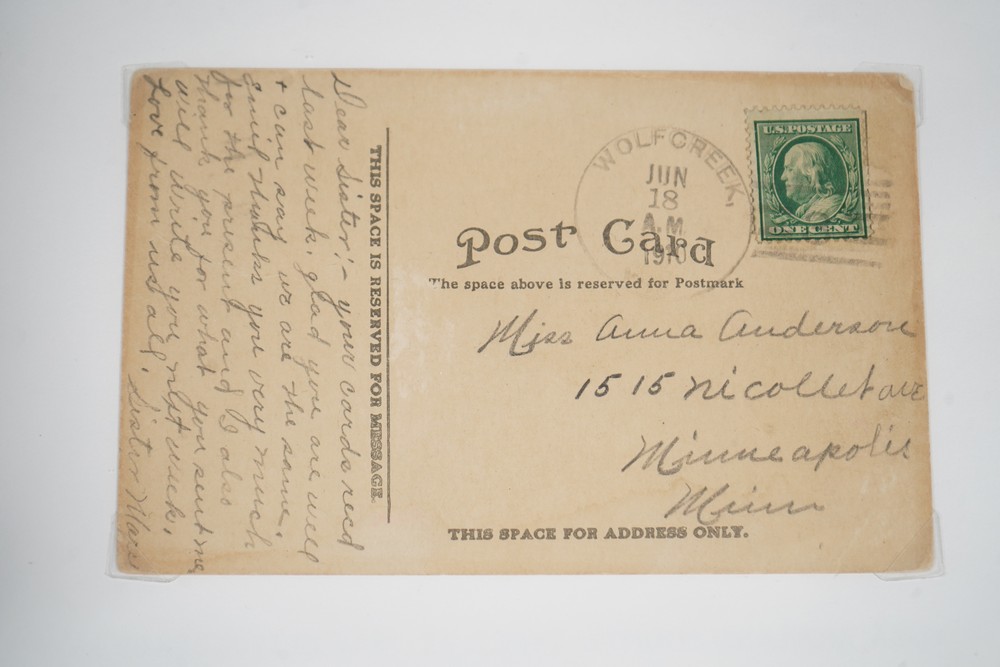 Dear Sister:- your cards rec'd
last week, glad you are well
+ can say we are the same.
Emil thanks you very much
for the present and I also
thank you for what you sent me
will write you next week,
Love from us all, Sister Mary
THIS SPACE IS RESERVED FOR MESSAGE.
WOLFCREEK,
JUN
18
A.M.
U.S. POSTAGE
ONE CENT
Post Card
The space above is reserved for Postmark
Miss Anna Anderson
1515 Nicollet ave
Minneapolis
Minn
THIS SPACE FOR ADDRESS ONLY.